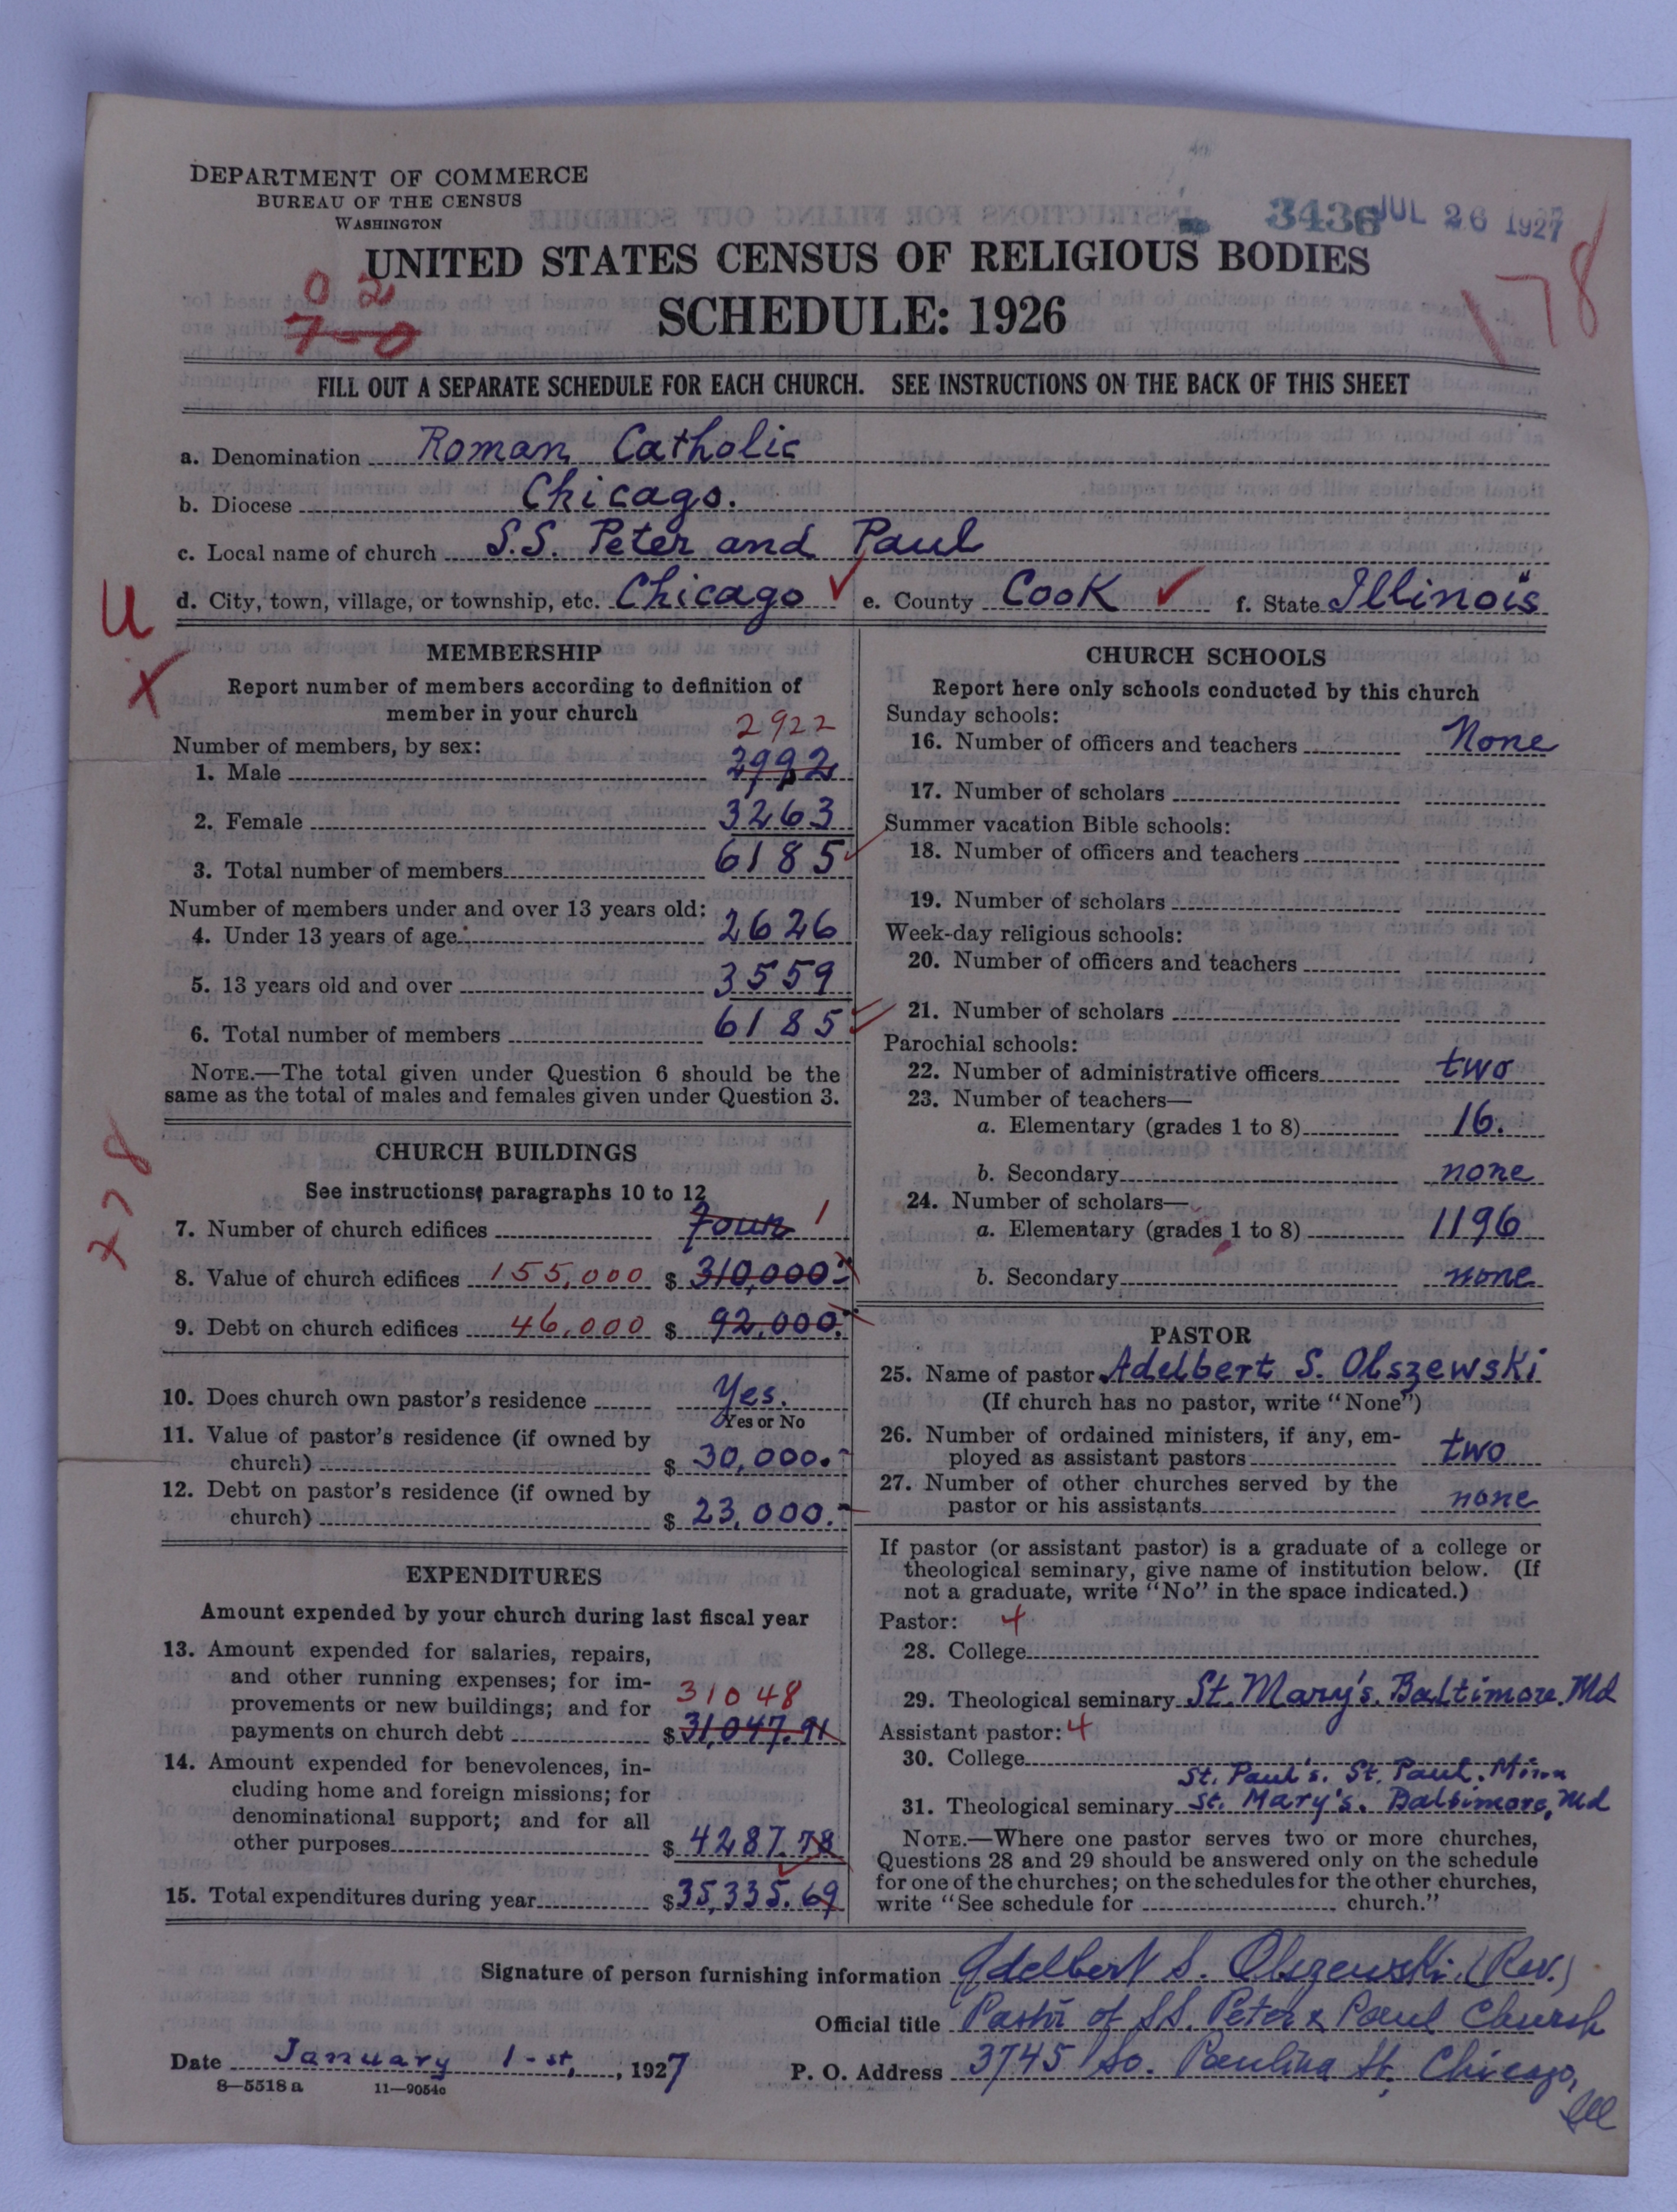 DEPARTMENT OF COMMERCE
BUREAU OF THE CENSUS
WASHINGTON
3436 JUL 26 1927
UNITED STATES CENSUS OF RELIGIOUS BODIES
SCHEDULE: 1926
0 2
7-0
178
FILL OUT A SEPARATE SCHEDULE FOR EACH CHURCH. SEE INSTRUCTIONS ON THE BACK OF THIS SHEET
a. Denomination Roman Catholic
b. Diocese Chicago.
c. Local name of church S.S. Peter and Paul
d. City, town, village, or township, etc. Chicago ✓ e. County Cook ✓ f. State Illinois
U
X
MEMBERSHIP
Report number of members according to definition of
member in your church
2922
Number of members, by sex:
1. Male 2992
2. Female 3263
3. Total number of members 6185
Number of members under and over 13 years old:
4. Under 13 years of age 2626
5. 13 years old and over 3559
6. Total number of members 6185
NOTE.—The total given under Question 6 should be the
same as the total of males and females given under Question 3.
CHURCH BUILDINGS
See instructions, paragraphs 10 to 12
7. Number of church edifices Four 1
8. Value of church edifices 155,000 $ 310,000.-
9. Debt on church edifices 46,000 $ 92,000.-
10. Does church own pastor's residence Yes.
Yes or No
11. Value of pastor's residence (if owned by
church) $ 30,000.-
12. Debt on pastor's residence (if owned by
church) $ 23,000.-
EXPENDITURES
Amount expended by your church during last fiscal year
13. Amount expended for salaries, repairs,
and other running expenses; for im-
provements or new buildings; and for 31048
payments on church debt $ 31,047.91
14. Amount expended for benevolences, in-
cluding home and foreign missions; for
denominational support; and for all
other purposes $ 4287.78
15. Total expenditures during year $ 35,335.69
CHURCH SCHOOLS
Report here only schools conducted by this church
Sunday schools:
16. Number of officers and teachers None
17. Number of scholars
Summer vacation Bible schools:
18. Number of officers and teachers
19. Number of scholars
Week-day religious schools:
20. Number of officers and teachers
21. Number of scholars
Parochial schools:
22. Number of administrative officers two
23. Number of teachers—
a. Elementary (grades 1 to 8) 16.
b. Secondary none
24. Number of scholars—
a. Elementary (grades 1 to 8) 1196
b. Secondary none
PASTOR
25. Name of pastor Adelbert S. Olszewski
(If church has no pastor, write "None")
26. Number of ordained ministers, if any, em-
ployed as assistant pastors two
27. Number of other churches served by the
pastor or his assistants none
If pastor (or assistant pastor) is a graduate of a college or
theological seminary, give name of institution below. (If
not a graduate, write "No" in the space indicated.)
Pastor: 4
28. College
29. Theological seminary St. Mary's. Baltimore. Md
Assistant pastor: 4
30. College
St. Paul's. St. Paul. Minn
31. Theological seminary St. Mary's. Baltimore, Md
NOTE.—Where one pastor serves two or more churches,
Questions 28 and 29 should be answered only on the schedule
for one of the churches; on the schedules for the other churches,
write "See schedule for church."
Signature of person furnishing information Adelbert S. Olszewski (Rev.)
Official title Pastor of SS. Peter & Paul Church
Date January 1-st, 1927 P. O. Address 3745 So. Paulina St. Chicago,
Ill
8—5518a 11—9054c